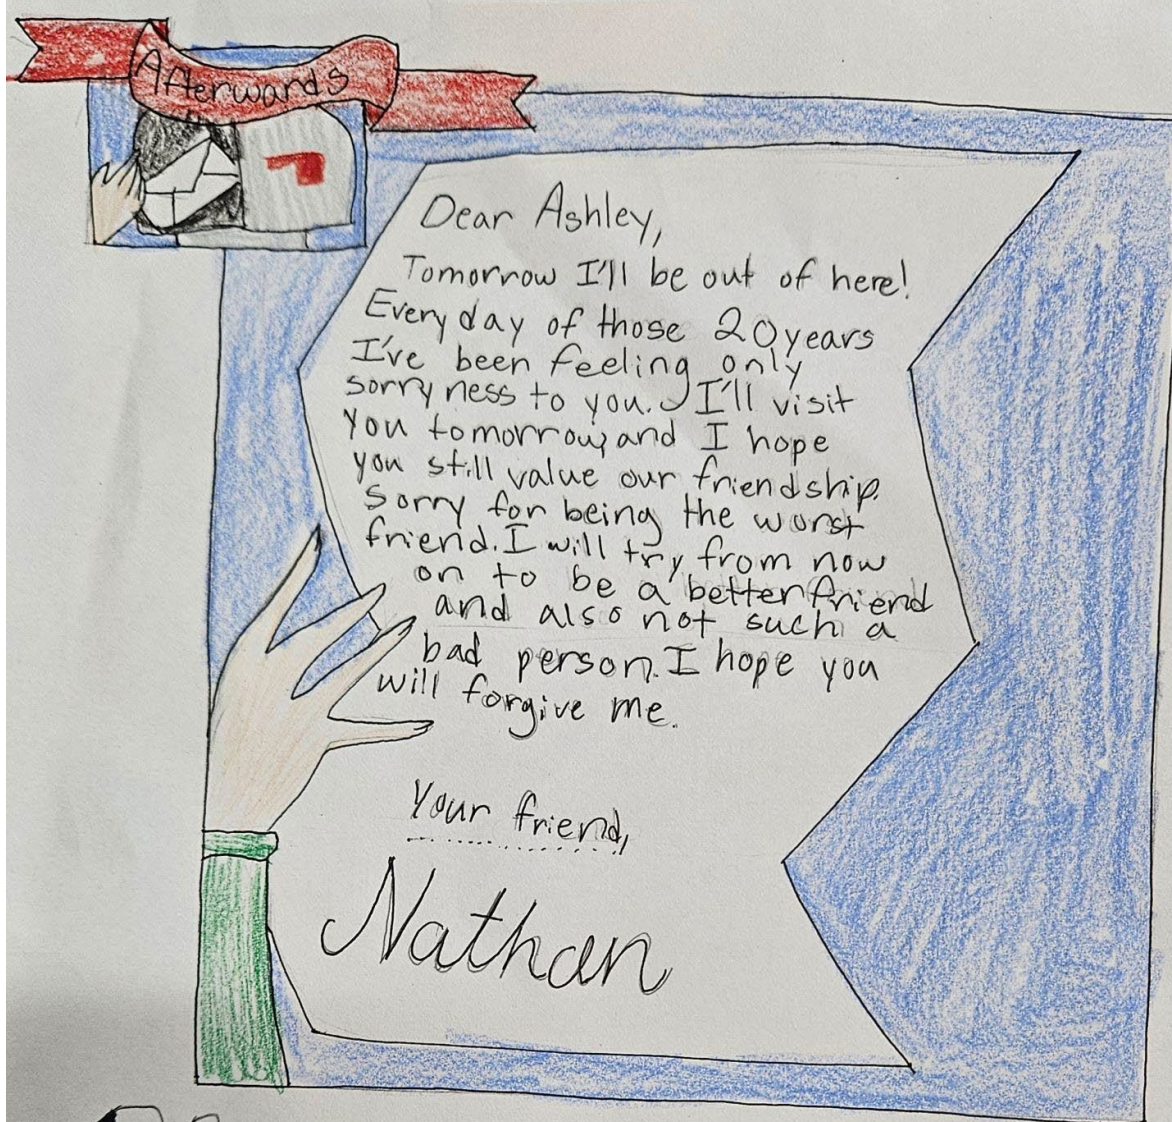 Afterwards
Dear Ashley,
Tomorrow I'll be out of here!
Every day of those 20 years
I've been feeling only
sorryness to you. I'll visit
you tomorrow, and I hope
you still value our friendship.
Sorry for being the worst
friend. I will try from now
on to be a better friend
and also not such a
bad person. I hope you
will forgive me.
Your friend,
Nathan